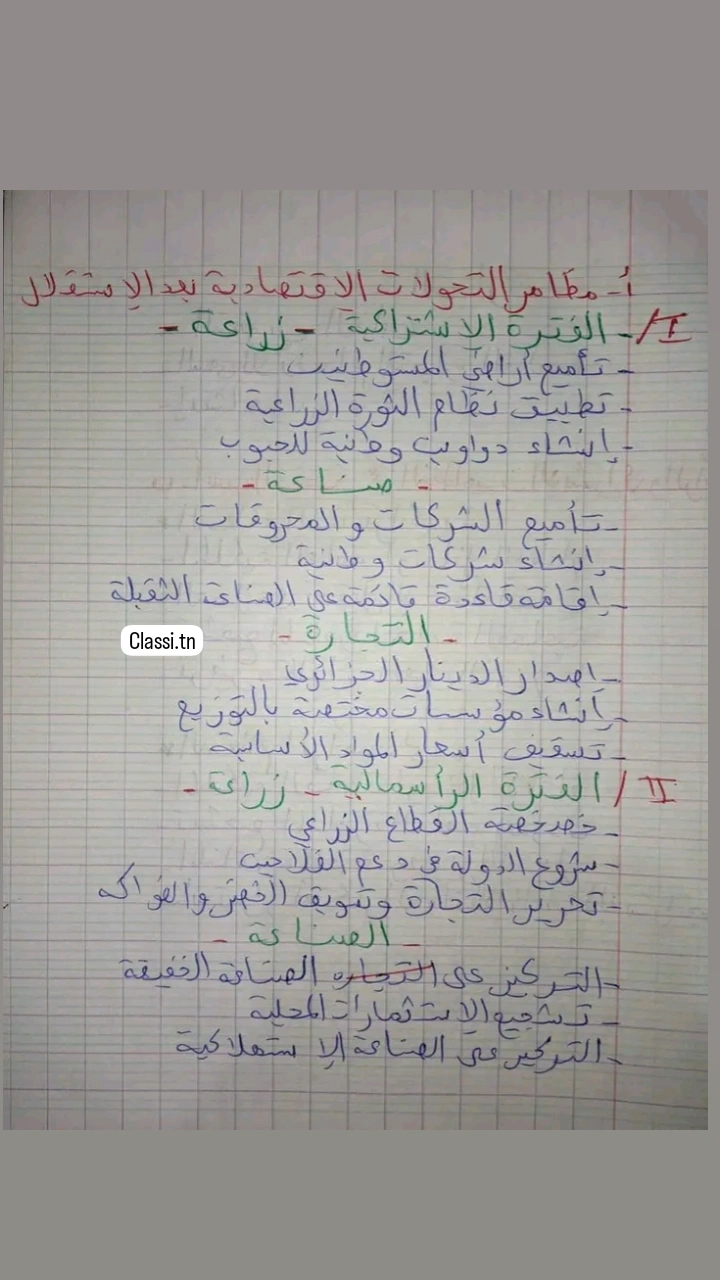 أ- مظاهر التحولات الإقتصادية بعد الإستقلال
I/- الفترة الإشتراكية - زراعة -
- تأميع أراضي المستوطنين
- تطبيق نظام الثورة الزراعية
- إنشاء دواوين وطنية للحبوب
- صناعة -
- تأميع الشركات والمحروقات
- إنشاء شركات وطنية
- إقامة قاعدة قائمة على الصناعة الثقيلة
- التجارة -
Classi.tn
- إصدار الدينار الجزائري
- إنشاء مؤسسات مختصة بالتوزيع
- تسقيف أسعار المواد الأساسية
II/ الفترة الرأسمالية - زراعة -
- خصخصة القطاع الزراعي
- شروع الدولة في دعم الفلاحين
- تحرير التجارة وتسويق الخضر والفواكه
- الصناعة -
- التركيز على التجاره الصناعة الخفيفة
- تشجيع الإستثمارات المحلية
- التركيز على الصناعة الإستهلاكية